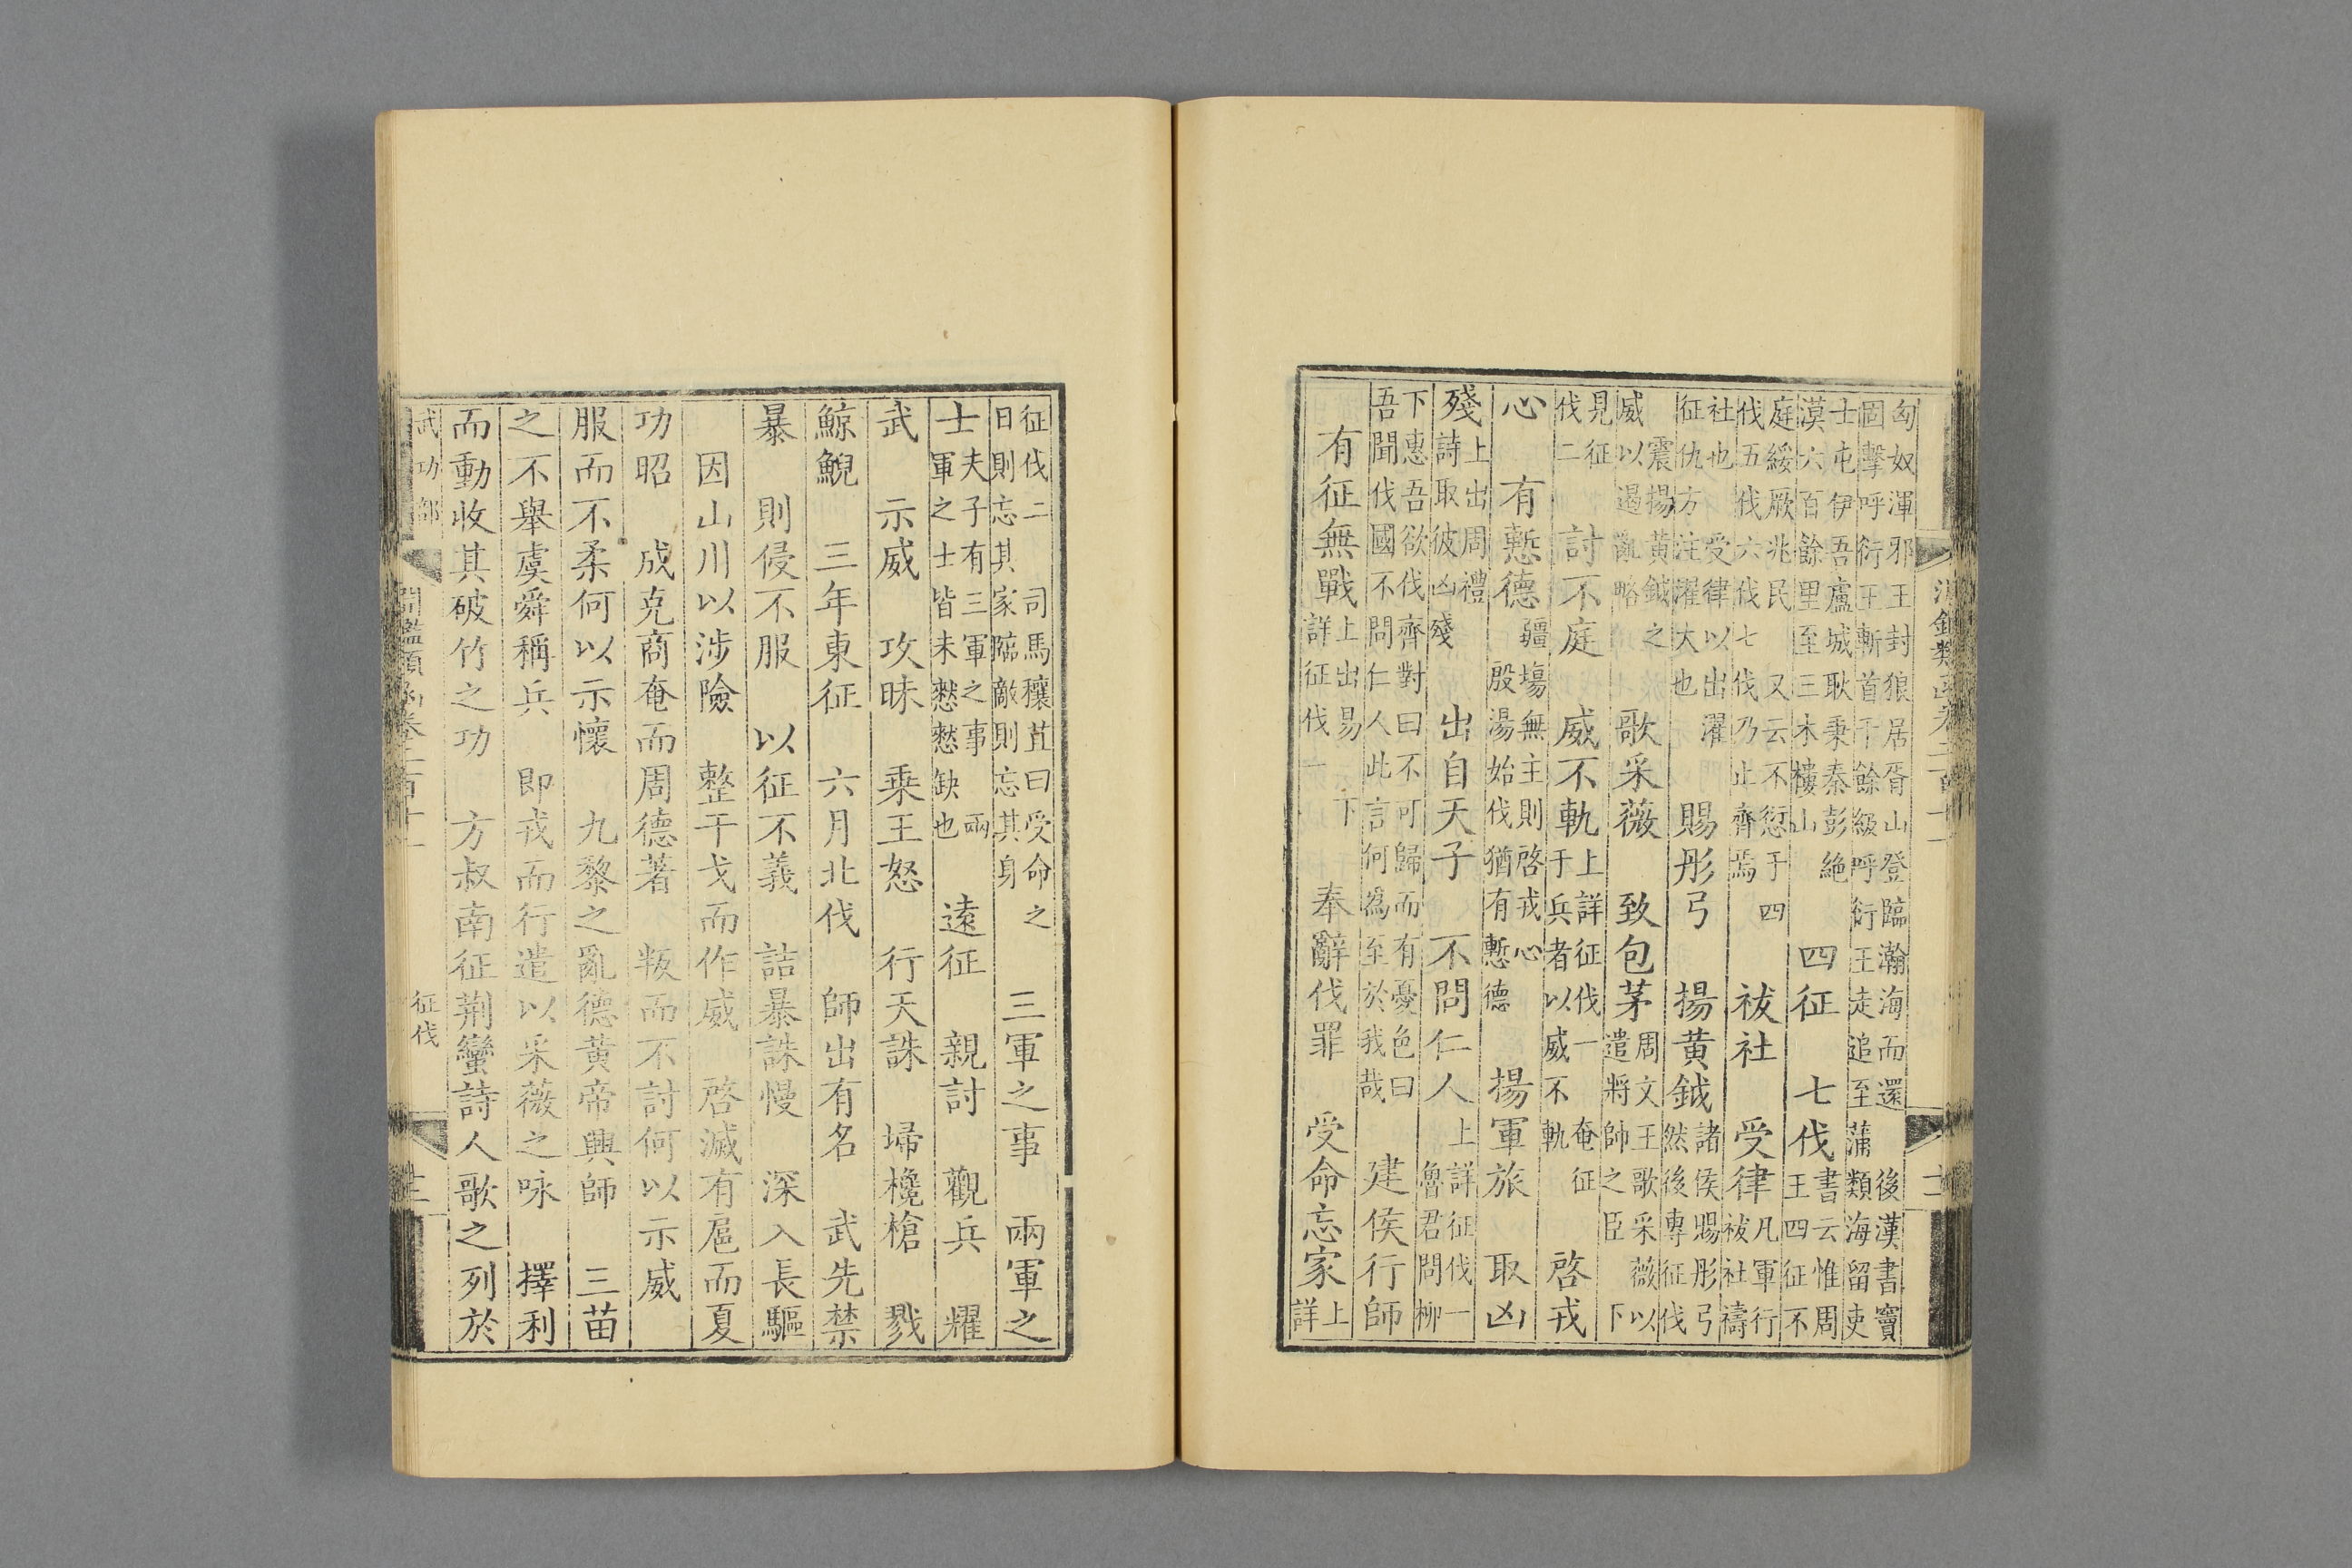 淵鑑類函卷二百十一
十二
匈奴渾邪王封狼居胥山登臨瀚海而還 後漢書竇
固擊呼衍王斬首千餘級呼衍王走追至蒲類海留吏
士屯伊吾盧城耿秉秦彭絶
漠六百餘里至三木樓山
四征 七伐
書云惟周
王四征不
庭綏厥兆民 又云不愆于四
伐五伐六伐七伐乃止齊焉
祓社 受律
凡軍行
祓社禱
社也 受律以出 濯
征仇方注濯大也
賜彤弓 揚黄鉞
諸侯賜彤弓
然後專征伐
威 震揚黄鉞之
以遏亂略
歌采薇 致包茅
周文王歌采薇以
遣將帥之臣 下
見征
伐二
討不庭 威不軌
上詳征伐一 奄征
于兵者以威不軌
啓戎
心 有慙德
疆塲無主則啓戎心
殷湯始伐猶有慙德
揚軍旅 取凶
殘
上出周禮
詩取彼凶殘
出自天子 不問仁人
上詳征伐一
魯君問柳
下惠吾欲伐齊對曰不可歸而有憂色曰
吾聞伐國不問仁人此言何為至於我哉
建侯行師
有征無戰
上出易 下
詳征伐一
奉辭伐罪 受命忘家
上
詳
征伐二 司馬穰苴曰受命之
日則忘其家臨敵則忘其身
三軍之事 兩軍之
士
夫子有三軍之事 兩
軍之士士皆未憖憖缺也
遠征 親討 觀兵 耀
武 示威 攻昧 乗王怒 行天誅 埽欃槍 戮
鯨鯢 三年東征 六月北伐 師出有名 武先禁
暴 則侵不服 以征不義 詰暴誅慢 深入長驅
因山川以涉險 整干戈而作威 啓滅有扈而夏
功昭 成克商奄而周德著 叛而不討何以示威
服而不柔何以示懷 九黎之亂德黄帝興師 三苗
之不舉虞舜稱兵 即戎而行遣以采薇之咏 擇利
而動收其破竹之功 方叔南征荆蠻詩人歌之列於
武功部
淵鑑類函卷二百十一
征伐
十三